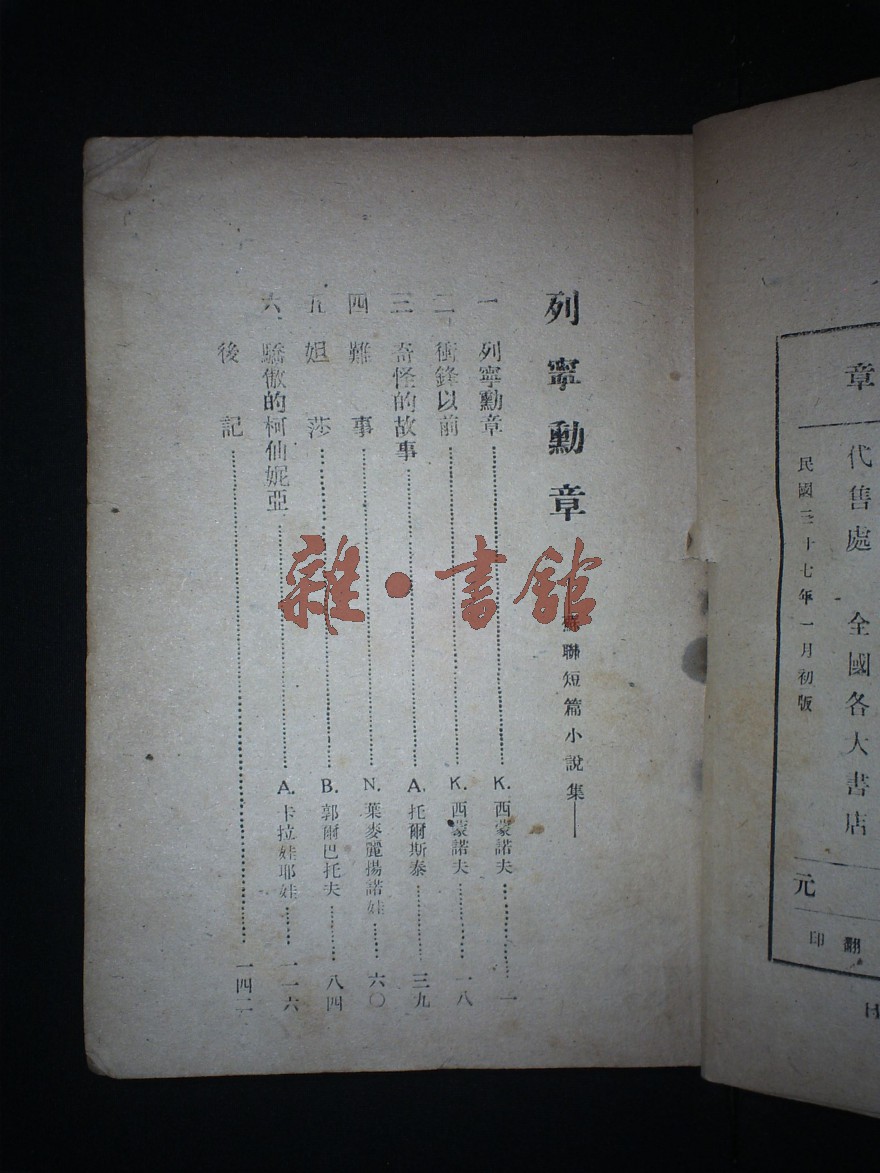 章
代售處 全國各大書店
民國三十七年一月初版
元
翻
印
列寧勳章
——蘇聯短篇小說集——
一 列寧勳章 K. 西蒙諾夫 一
二 衝鋒以前 K. 西蒙諾夫 一八
三 奇怪的故事 A. 托爾斯泰 三九
四 難事 N. 葉麥麗揚諾娃 六〇
五 妲莎 B. 郭爾巴托夫 八四
六、驕傲的柯仙妮亞 A. 卡拉娃耶娃 一一六
後記 一四二
雜·書館